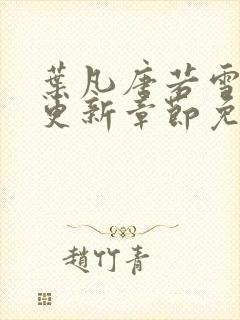 葉凡唐若雪
更新章節免
趙竹青